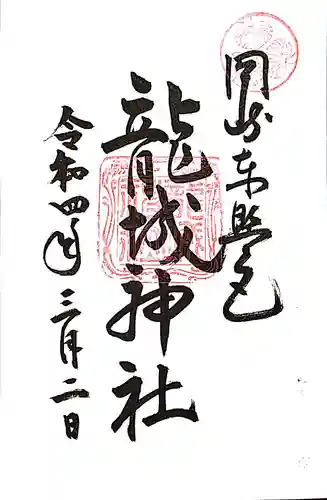 岡崎東照宮
龍城神社
令和四年
三月二日